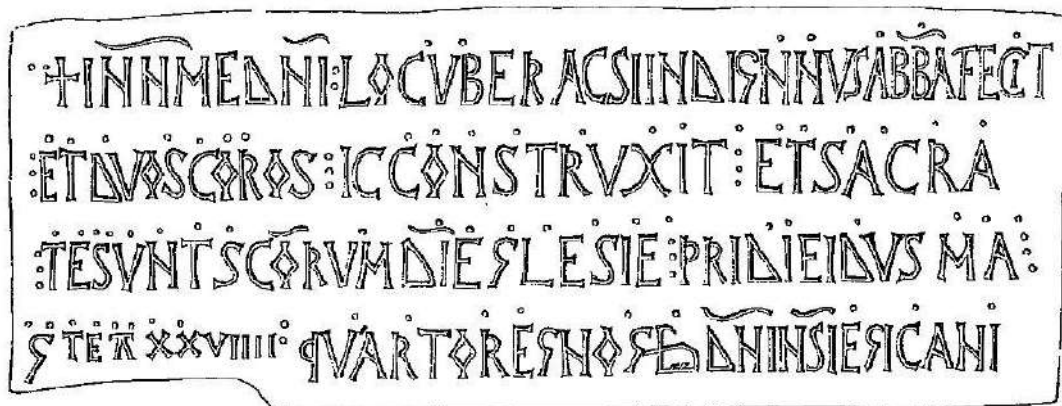 + IN NME DNI : LOCVBER ACSI INDIGNNVS ABBA FECIT
ET DVOS COROS : IC CONSTRVXIT : ET SACRA
TE SVNT SCORVM DI EGLESIE : PRIDIE IDVS MA
S TEA XXVIIII QVARTO REGNO DNI NSI EGICANI